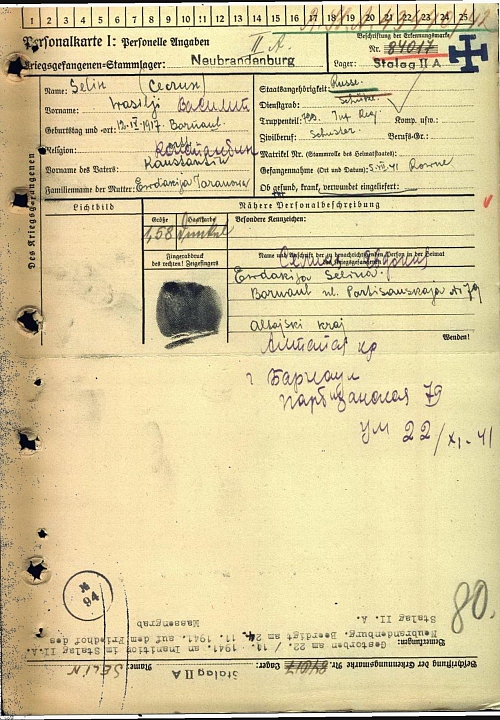 1 2 3 4 5 6 7 8 9 10 11 12 13 14 15 16 17 18 19 20 21 22 23 24 25
Personalkarte I: Personelle Angaben
II A.
Beschriftung der Erkennungsmarke
Nr. 84017
Kriegsgefangenen-Stammlager: Neubrandenburg
Lager: Stalag II A
Des Kriegsgefangenen
Name: Selin (Селин)
Vorname: Wasilji Василий
Geburtstag und -ort: 12.IV.1917. Barnaul
Religion: orth
Vorname des Vaters: Konstantin
Familienname der Mutter: Ewdakija Taranowa
Staatsangehörigkeit: Russe.
Dienstgrad: Schütze
Truppenteil: Inf Reg Komp. usw.:
Zivilberuf: Schuster Berufs-Gr.:
Matrikel Nr. (Stammrolle des Heimatstaates):
Gefangennahme (Ort und Datum): Rowno
Ob gesund, krank, verwundet eingeliefert:
Lichtbild
Nähere Personalbeschreibung
Größe Haarfarbe Besondere Kennzeichen:
1,58 dunkel
Fingerabdruck
des rechten! Zeigefingers
Name und Anschrift der zu benachrichtigenden Person in der Heimat
des Kriegsgefangenen
Ewdakija Selina.
Barnaul ul. Partisanskaja Nr 79
Altajski kraj
Wenden!
Алтайск кр
г Барнаул
Партизанская 79
ум 22/XI-41
80.
N
94
Beschriftung der Erkennungsmarke Nr. 84017 Lager: Stalag II A Name: SELIN
Bemerkungen: Gestorben am 22 / 11. 1941. an Inanition im Stalag II.A.
Neubrandenburg. Beerdigt am 24. 11. 1941 auf dem Friedhof des
Stalag II. A. Massengrab